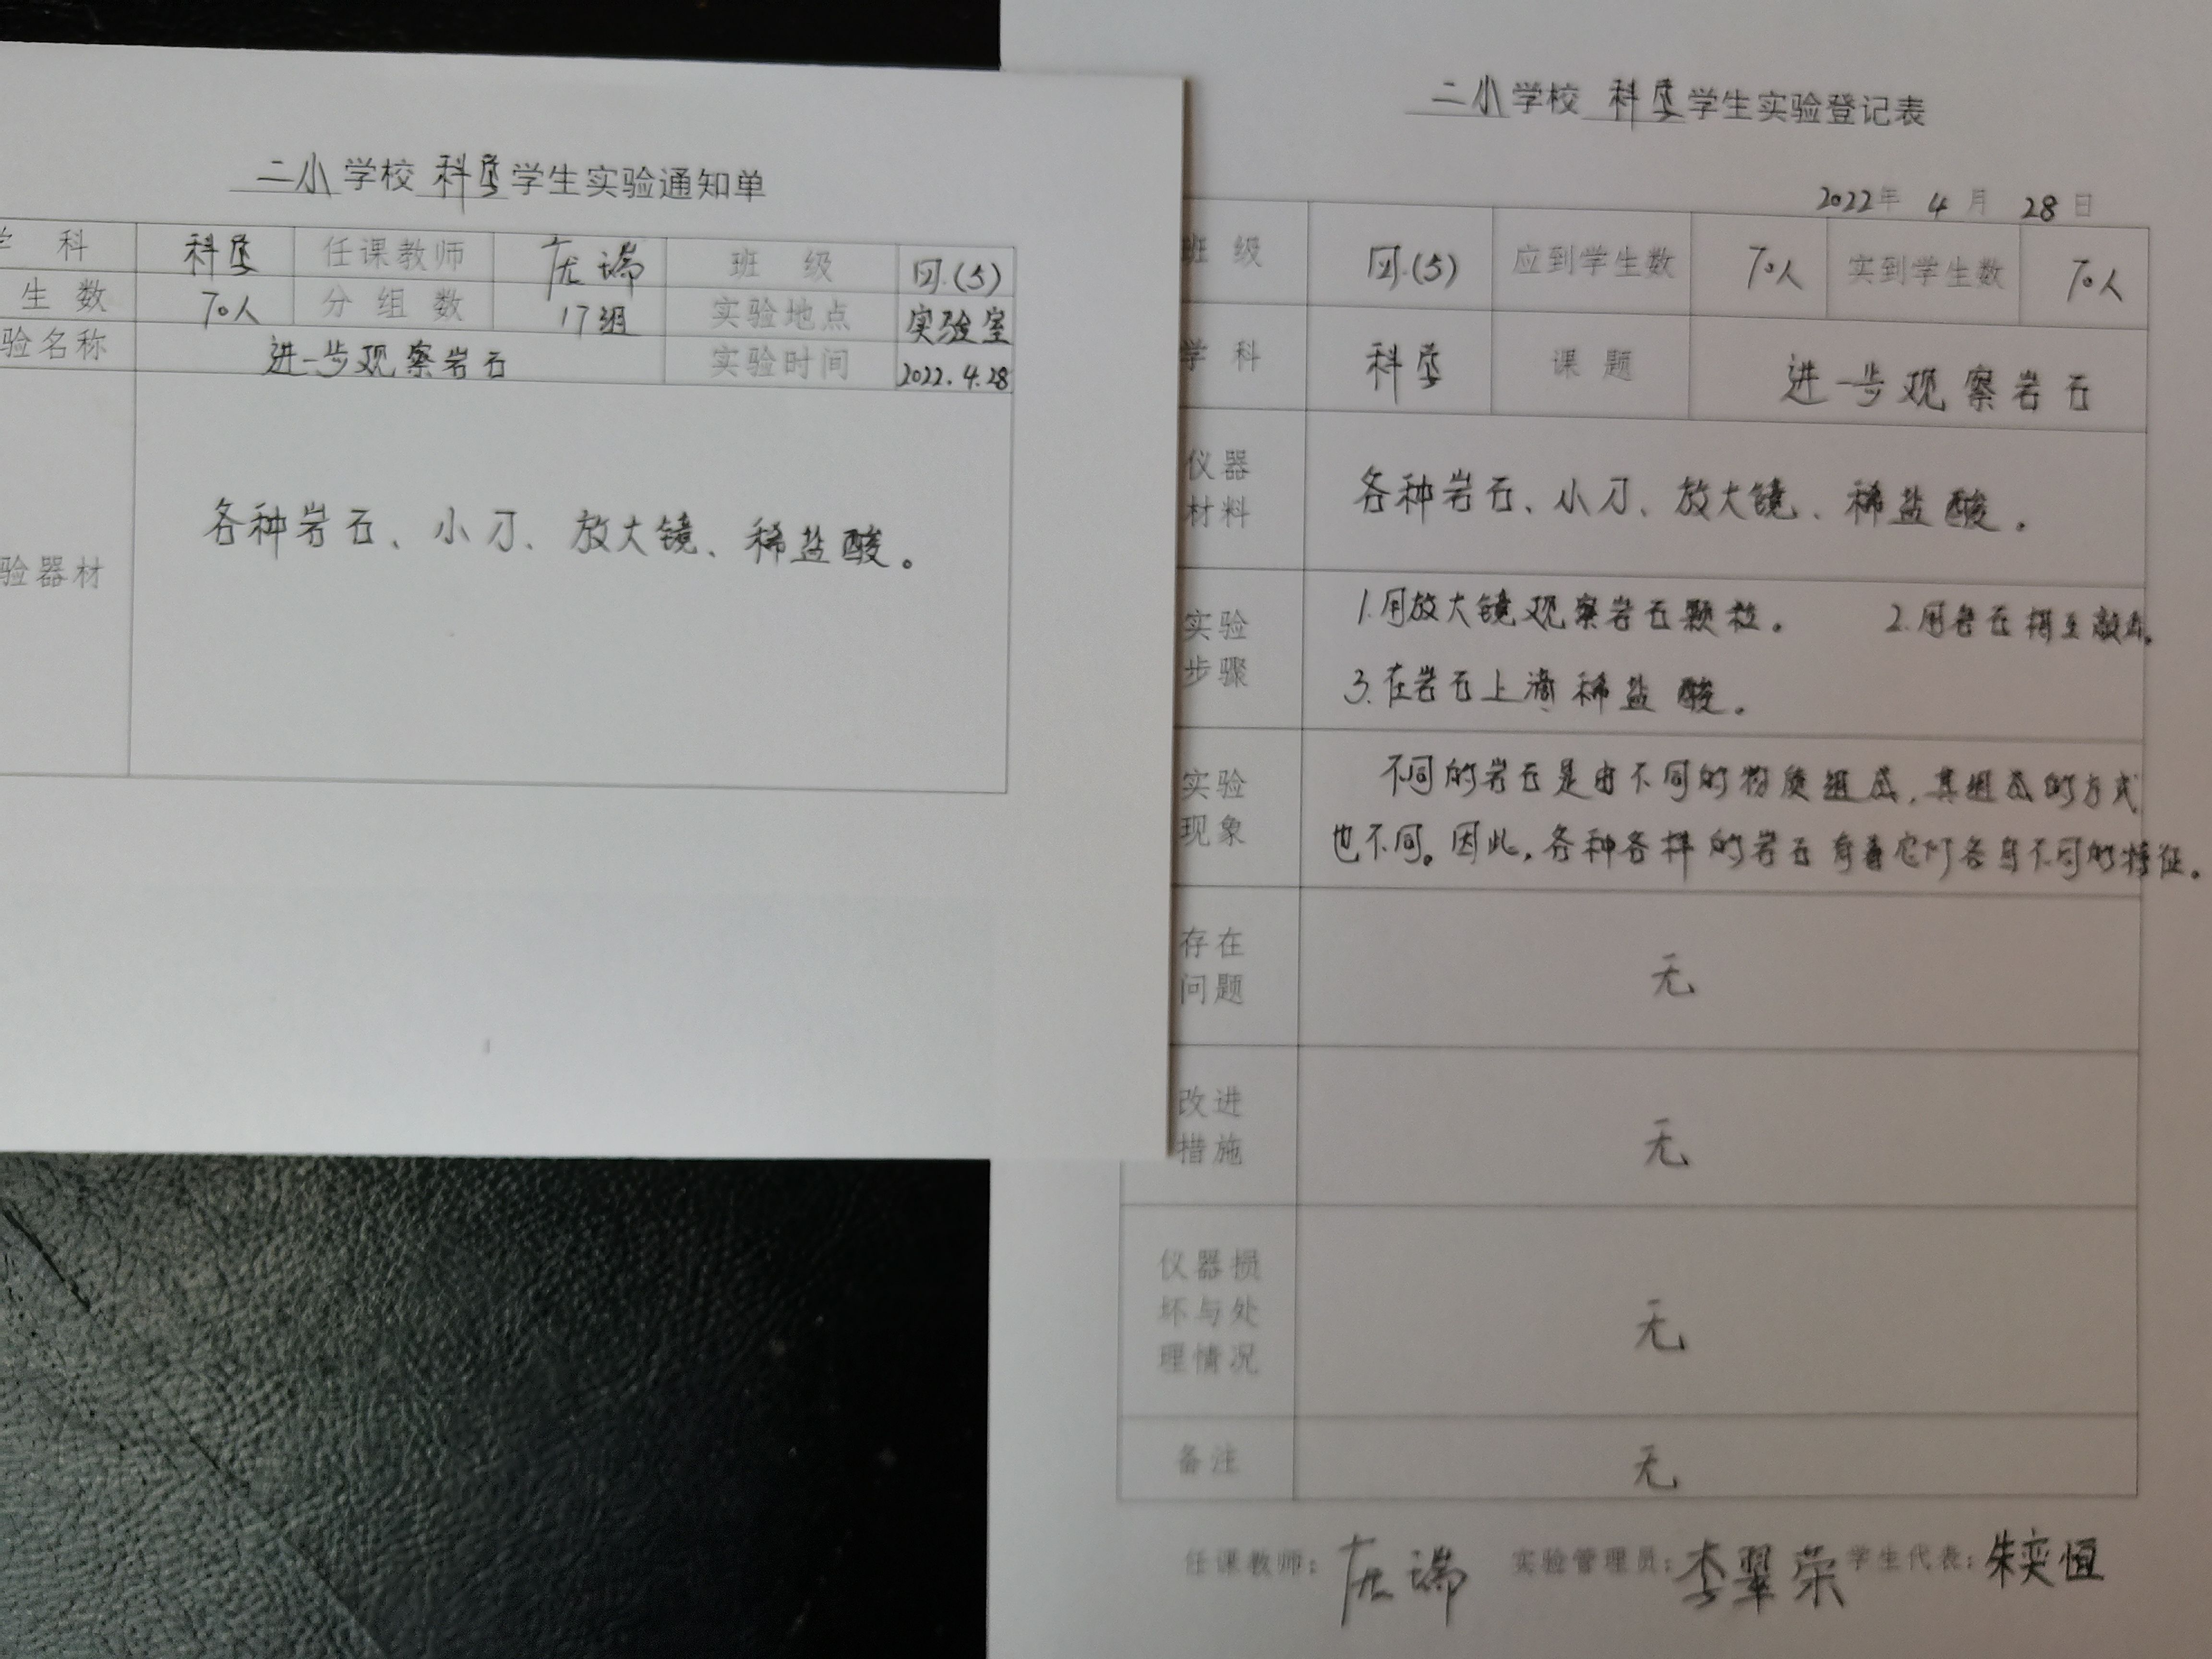 二小学校 科学学生实验通知单
学 科 科学 任课教师 庞瑞 班 级 四.(5)
生 数 70人 分 组 数 17组 实验地点 实验室
验名称 进一步观察岩石 实验时间 2022.4.28
验器材 各种岩石、小刀、放大镜、稀盐酸。
二小学校 科学学生实验登记表
2022年 4月 28日
班 级 四.(5) 应到学生数 70人 实到学生数 70人
学 科 科学 课 题 进一步观察岩石
仪器
材料
各种岩石、小刀、放大镜、稀盐酸.
实验
步骤
1.用放大镜观察岩石颗粒。 2.用岩石相互敲击。
3.在岩石上滴稀盐酸。
实验
现象
不同的岩石是由不同的物质组成,其组成的方式
也不同。因此,各种各样的岩石有着它们各自不同的特征。
存在
问题
无
改进
措施
无
仪器损
坏与处
理情况
无
备注 无
任课教师: 庞瑞 实验管理员: 李翠荣 学生代表: 朱奕恒